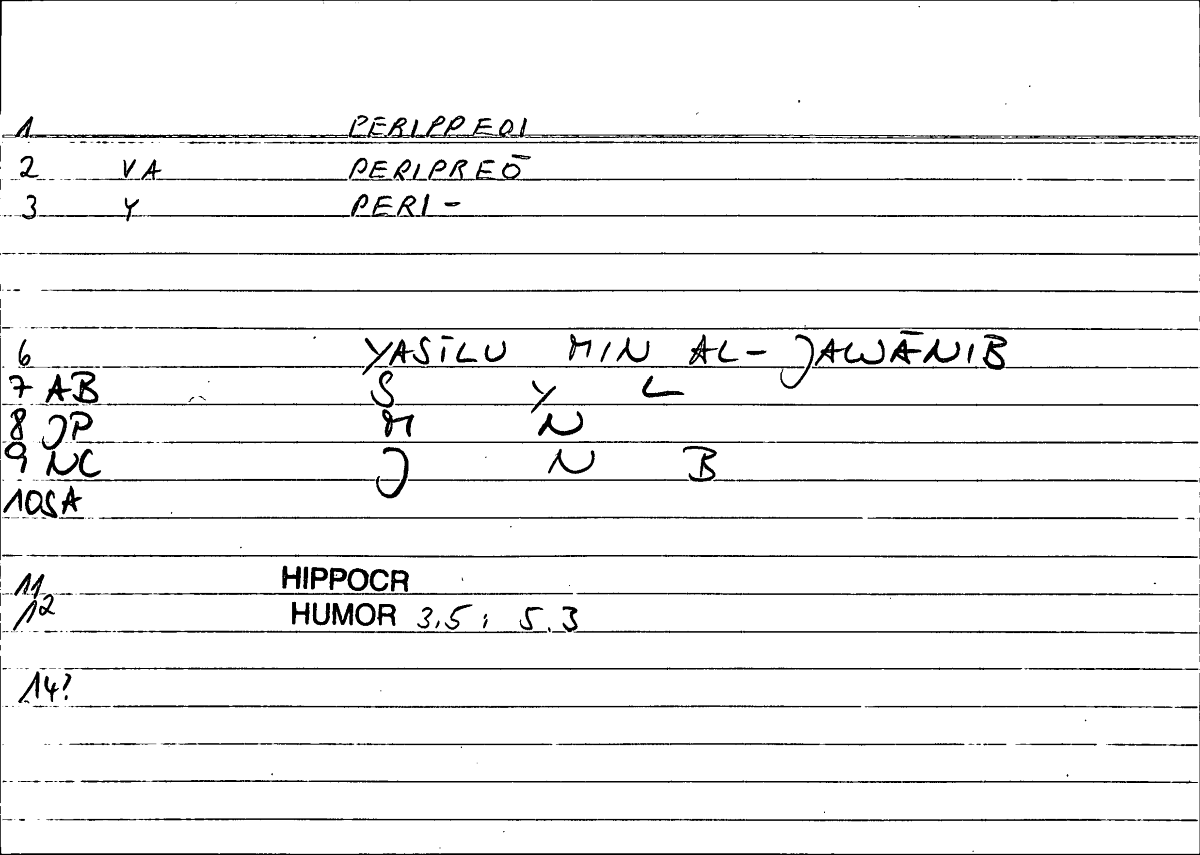 1 PERIPPEOI
2 VA PERIPREŌ
3 Y PERI-
6 YASĪLU MIN AL-JAWĀNIB
7 AB S Y L
8 JP M N
9 NC J N B
10 SA
11 HIPPOCR
12 HUMOR 3,5; 5.3
14?